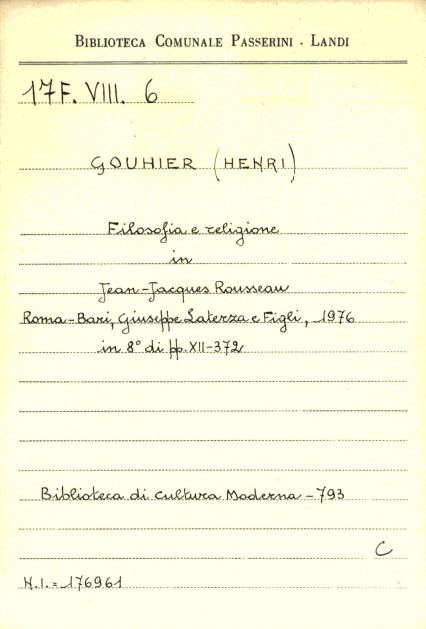 BIBLIOTECA COMUNALE PASSERINI - LANDI
17F. VIII. 6
GOUHIER (HENRI)
Filosofia e religione
in
Jean-Jacques Rousseau
Roma-Bari, Giuseppe Laterza e Figli, 1976
in 8° di pp. XII-372
Biblioteca di cultura Moderna - 793
C
N.I. = 176961